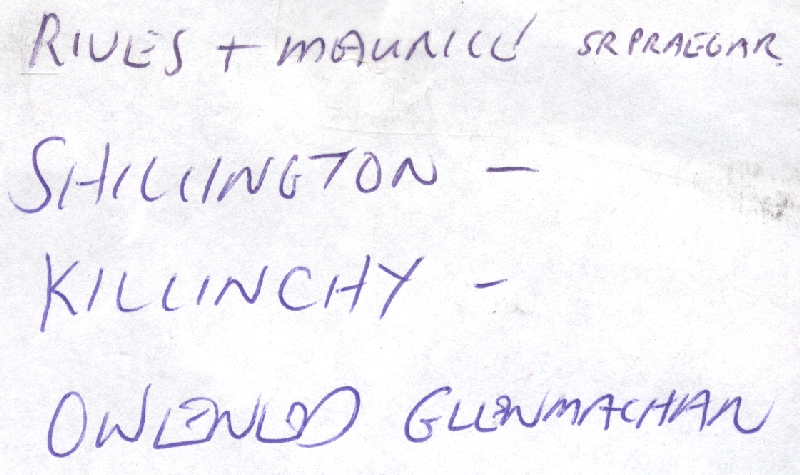 RIVES + MAURICE SR PRAEGAR
SHILLINGTON -
KILLINCHY -
GLENMACHAN